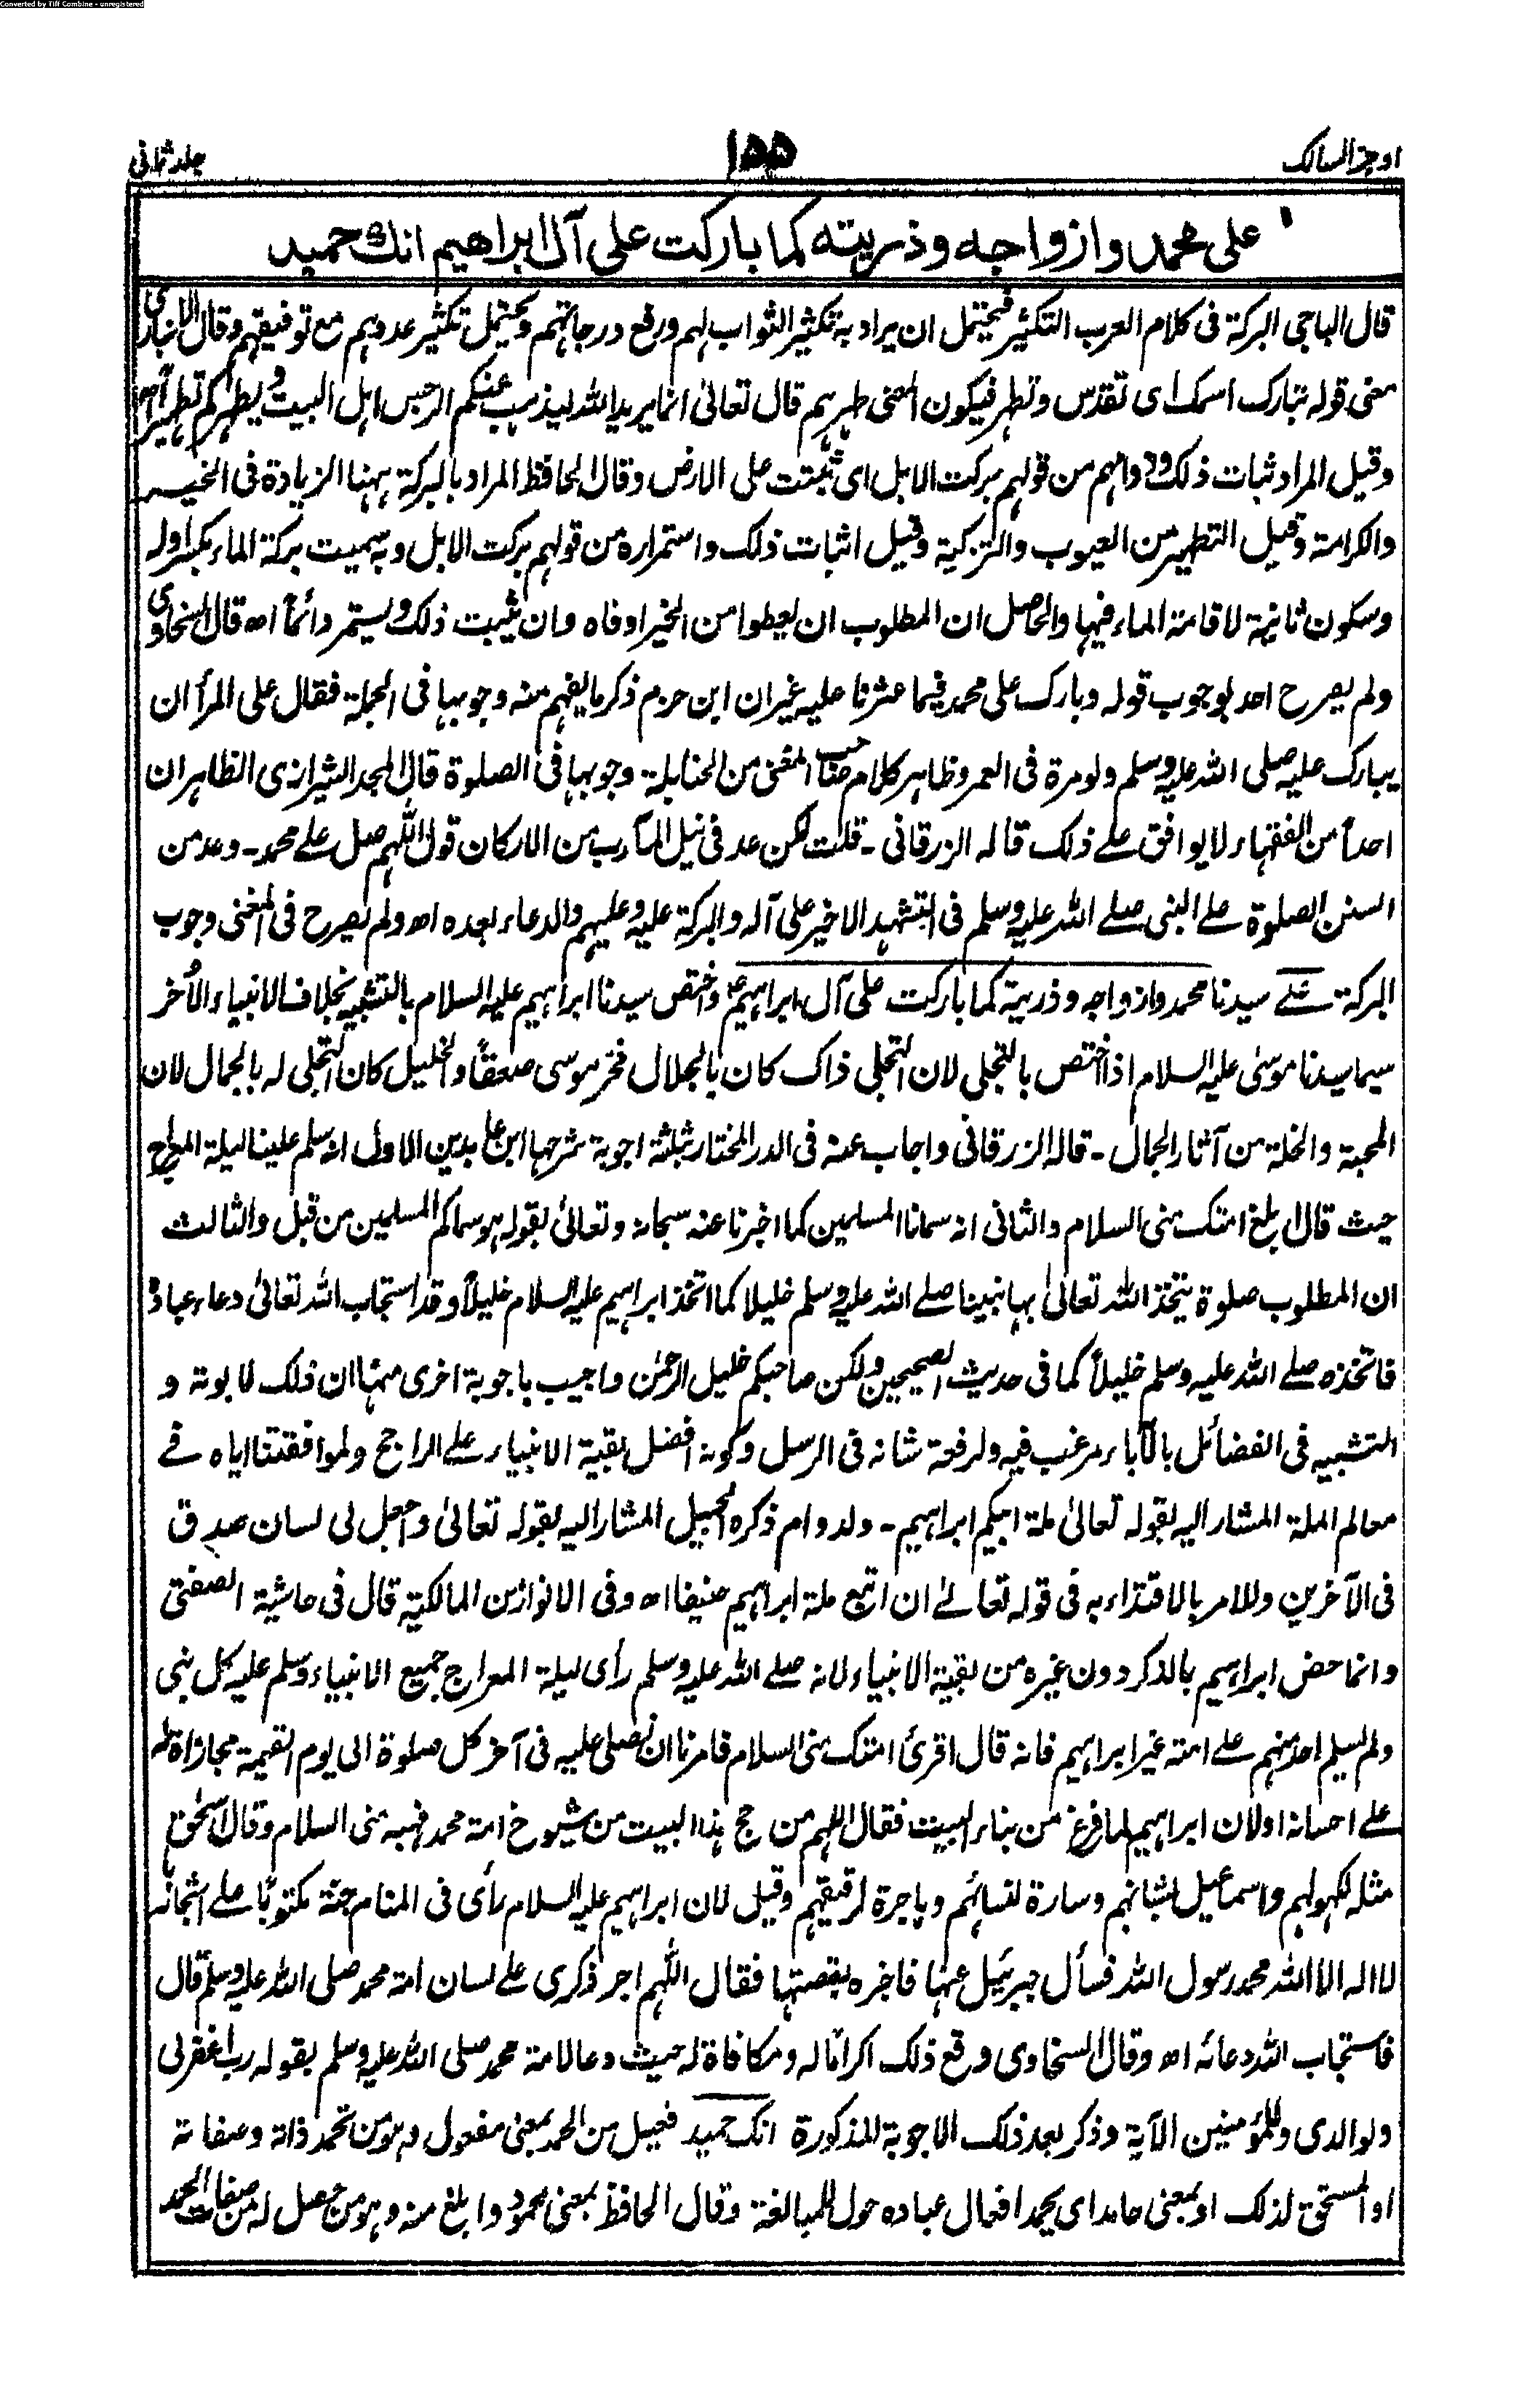 Converted by Tiff Combine - unregistered
اوجز المسالک
۱۵۵
جلد ثانی
على محمد وازواجه وذريته كما باركت على آل ابراهيم انك حميد
قال الباجی البرکة فی کلام العرب التکثیر فیحتمل ان یراد به تکثیر الثواب لهم ورفع درجاتهم ویحتمل تکثیر عددهم مع توفیقهم وقال الانباری
معنی قوله تبارک اسمک ای تقدس وتطهر فیکون المعنی طهرهم قال تعالیٰ انما یرید الله لیذهب عنکم الرجس اهل البیت ویطهرکم تطهیرا اھ
وقیل المراد ثبات ذلک ودوامهم من قولهم برکت الابل ای ثبتت علی الارض وقال الحافظ المراد بالبرکة ههنا الزیادة فی الخیر
والکرامة وقیل التطهیر من العیوب والتزکیة وقیل اثبات ذلک واستمراره من قولهم برکت الابل وبه سمیت برکة الماء بکسر اوله
وسکون ثانیة لاقامة الماء فیها والحاصل ان المطلوب ان یعطوا من الخیر اوفاه وان یثبت ذلک ویستمر دائماً اھ قال السخاوی
ولم یصرح احد بوجوب قوله وبارک علی محمد فیما عثرنا علیه غیر ان ابن حزم ذکر ما یفهم منه وجوبها فی الجملة فقال علی المرأ ان
یبارک علیه صلی الله علیه وسلم ولو مرة فی العمر وظاهر کلام صاحب المغنی من الحنابلة وجوبها فی الصلوة قال المجد الشیرازی الظاهر ان
احداً من الفقهاء لا یوافق علے ذلک قاله الزرقانی ۔ قلت لکن عد فی نیل المآرب من الارکان قول اللهم صل علے محمد ۔ وعد من
السنن الصلوة علے النبی صلے الله علیه وسلم فی التشهد الاخیر علی آله والبرکة علیه وعلیهم والدعاء بعده اھ ولم یصرح فی المغنی وجوب
البرکة علے سیدنا محمد وازواجه وذریة کما بارکت علی آل ابراهیم واختص سیدنا ابراهیم علیه السلام بالتشبیه بخلاف الانبیاء الأخر
سیما سیدنا موسیٰ علیه السلام اذ اختص بالتجلی لان التجلی ذاک کان بالجلال فخر موسی صعقاً والخلیل کان التجلی له بالجمال لان
المحبة والخلة من آثار الجمال ۔ قاله الزرقانی واجاب عنه فی الدر المختار بثلثة اجوبة شرحها ابن عابدین الاول انه سلم علینا لیلة المعراج
حیث قال ابلغ امتک منی السلام والثانی انه سمانا المسلمین کما اخبرنا عنه سبحانه وتعالیٰ بقوله هو سماکم المسلمین من قبل والثالث
ان المطلوب صلوة یتخذ الله تعالیٰ بها نبینا صلے الله علیه وسلم خلیلا کما اتخذ ابراهیم علیه السلام خلیلاً وقد استجاب الله تعالیٰ دعاء عباده
فاتخذه صلے الله علیه وسلم خلیلاً کما فی حدیث الصحیحین ولکن صاحبکم خلیل الرحمٰن واجیب باجوبة اخری منها ان ذلک لابوته و
التشبیه فی الفضائل بالآباء مرغب فیه ولرفعة شانه فی الرسل وکونه افضل بقیة الانبیاء علے الراجح ولموافقتنا ایاه فے
معالم الملة المشار الیه بقوله تعالیٰ ملة ابیکم ابراهیم ۔ ولدوام ذکره الجمیل المشار الیه بقوله تعالیٰ واجعل لی لسان صدق
فی الآخرین وللامر بالاقتداء به فی قوله تعالےٰ ان اتبع ملة ابراهیم حنیفا اھ وفی الانوار من المالکیة قال فی حاشیة الصفتی
وانما خص ابراهیم بالذکر دون غیره من بقیة الانبیاء لانه صلے الله علیه وسلم رأی لیلة المعراج جمیع الانبیاء وسلم علیه کل نبی
ولم یسلم احد منهم علے امته غیر ابراهیم فانه قال اقرئ امتک منی السلام فامرنا ان نصلی علیه فی آخر کل صلوة الی یوم القیمة مجازاة له
علے احسانه او لان ابراهیم لما فرغ من بناء البیت فقال اللهم من حج هذا البیت من شیوخ امة محمد فهبه منی السلام وقال اسحٰق
مثله لکهولهم واسماعیل لشبانهم وسارة لنسائهم وهاجرة لرقیقهم وقیل لان ابراهیم علیه السلام رأی فی المنام جنة مکتوباً علے اشجارها
لا اله الا الله محمد رسول الله فسأل جبرئیل عنها فاخبره بقصتها فقال اللهم اجر ذکری علے لسان امة محمد صلی الله علیه وسلم قال
فاستجاب الله دعائه اھ وقال السخاوی وقع ذلک اکراماً له ومکافاة له حیث دعا لامة محمد صلی الله علیه وسلم بقوله رب اغفر لی
ولوالدی وللمؤمنین الآیة وذکر بعد ذلک الاجوبة المذکورة انک حمید فعیل من الحمد بمعنی مفعول وهو من تحمد ذاته وصفاته
او المستحق لذلک او بمعنی حامد ای یحمد افعال عباده حول للمبالغة وقال الحافظ بمعنی محمود وابلغ منه وهو من حصل له من صفات الحمد